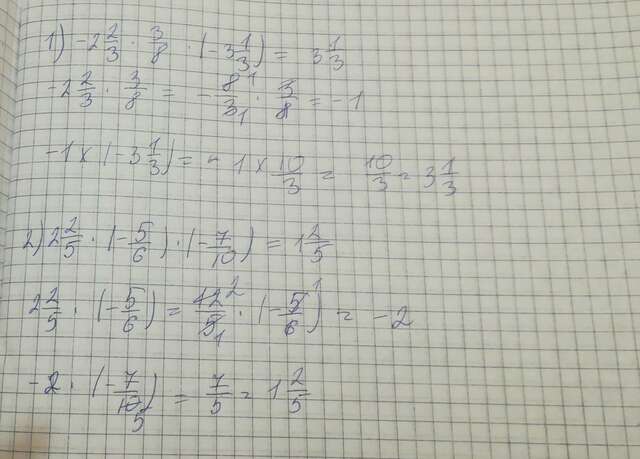 1) -2 2/3 · 3/8 · (-3 1/3) = 3 1/3
-2 2/3 · 3/8 = - 8/3 · 3/8 = -1
-1 × (-3 1/3) = - 1 × 10/3 = 10/3 = 3 1/3
2) 2 2/5 · (-5/6) · (-7/10) = 1 2/5
2 2/5 · (-5/6) = 12/5 · (-5/6) = -2
-2 · (-7/10) = 7/5 = 1 2/5